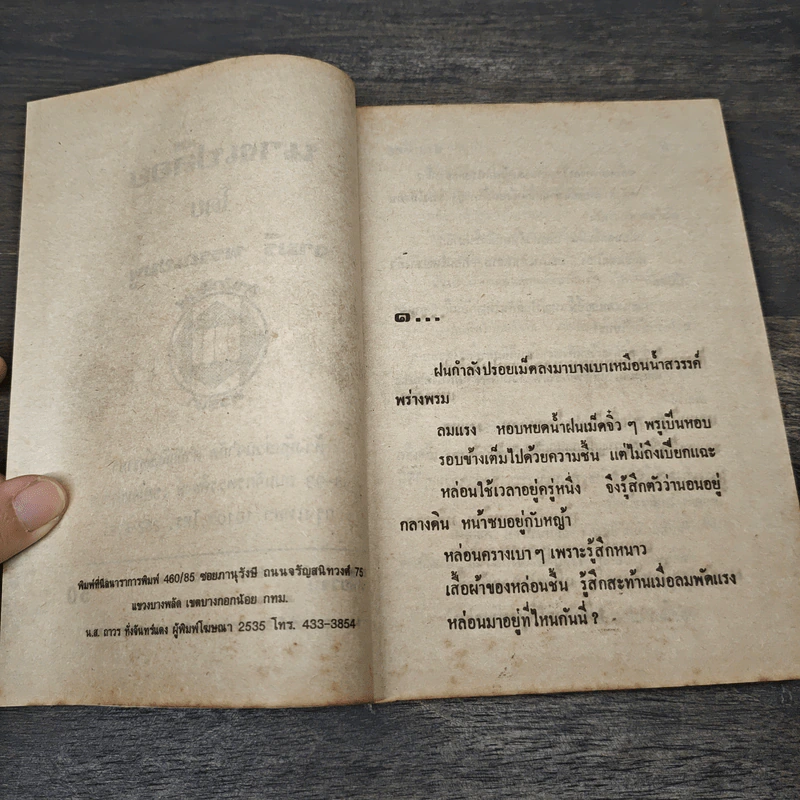 พิมพ์ที่นิลนาราการพิมพ์ 460/85 ซอยภานุรังษี ถนนจรัญสนิทวงศ์ 75
แขวงบางพลัด เขตบางกอกน้อย กทม.
น.ส. ถาวร ทั่งจันทร์แดง ผู้พิมพ์โฆษณา 2535 โทร. 433-3854
๑...
ฝนกำลังปรอยเม็ดลงมาบางเบาเหมือนน้ำสวรรค์
พร่างพรม
ลมแรง หอบหยดน้ำฝนเม็ดจิ๋ว ๆ พรูเป็นหอบ
รอบข้างเต็มไปด้วยความชื้น แต่ไม่ถึงเปียกแฉะ
หล่อนใช้เวลาอยู่ครู่หนึ่ง จึงรู้สึกตัวว่านอนอยู่
กลางดิน หน้าซบอยู่กับหญ้า
หล่อนครางเบา ๆ เพราะรู้สึกหนาว
เสื้อผ้าของหล่อนชื้น รู้สึกสะท้านเมื่อลมพัดแรง
หล่อนมาอยู่ที่ไหนกันนี่ ?